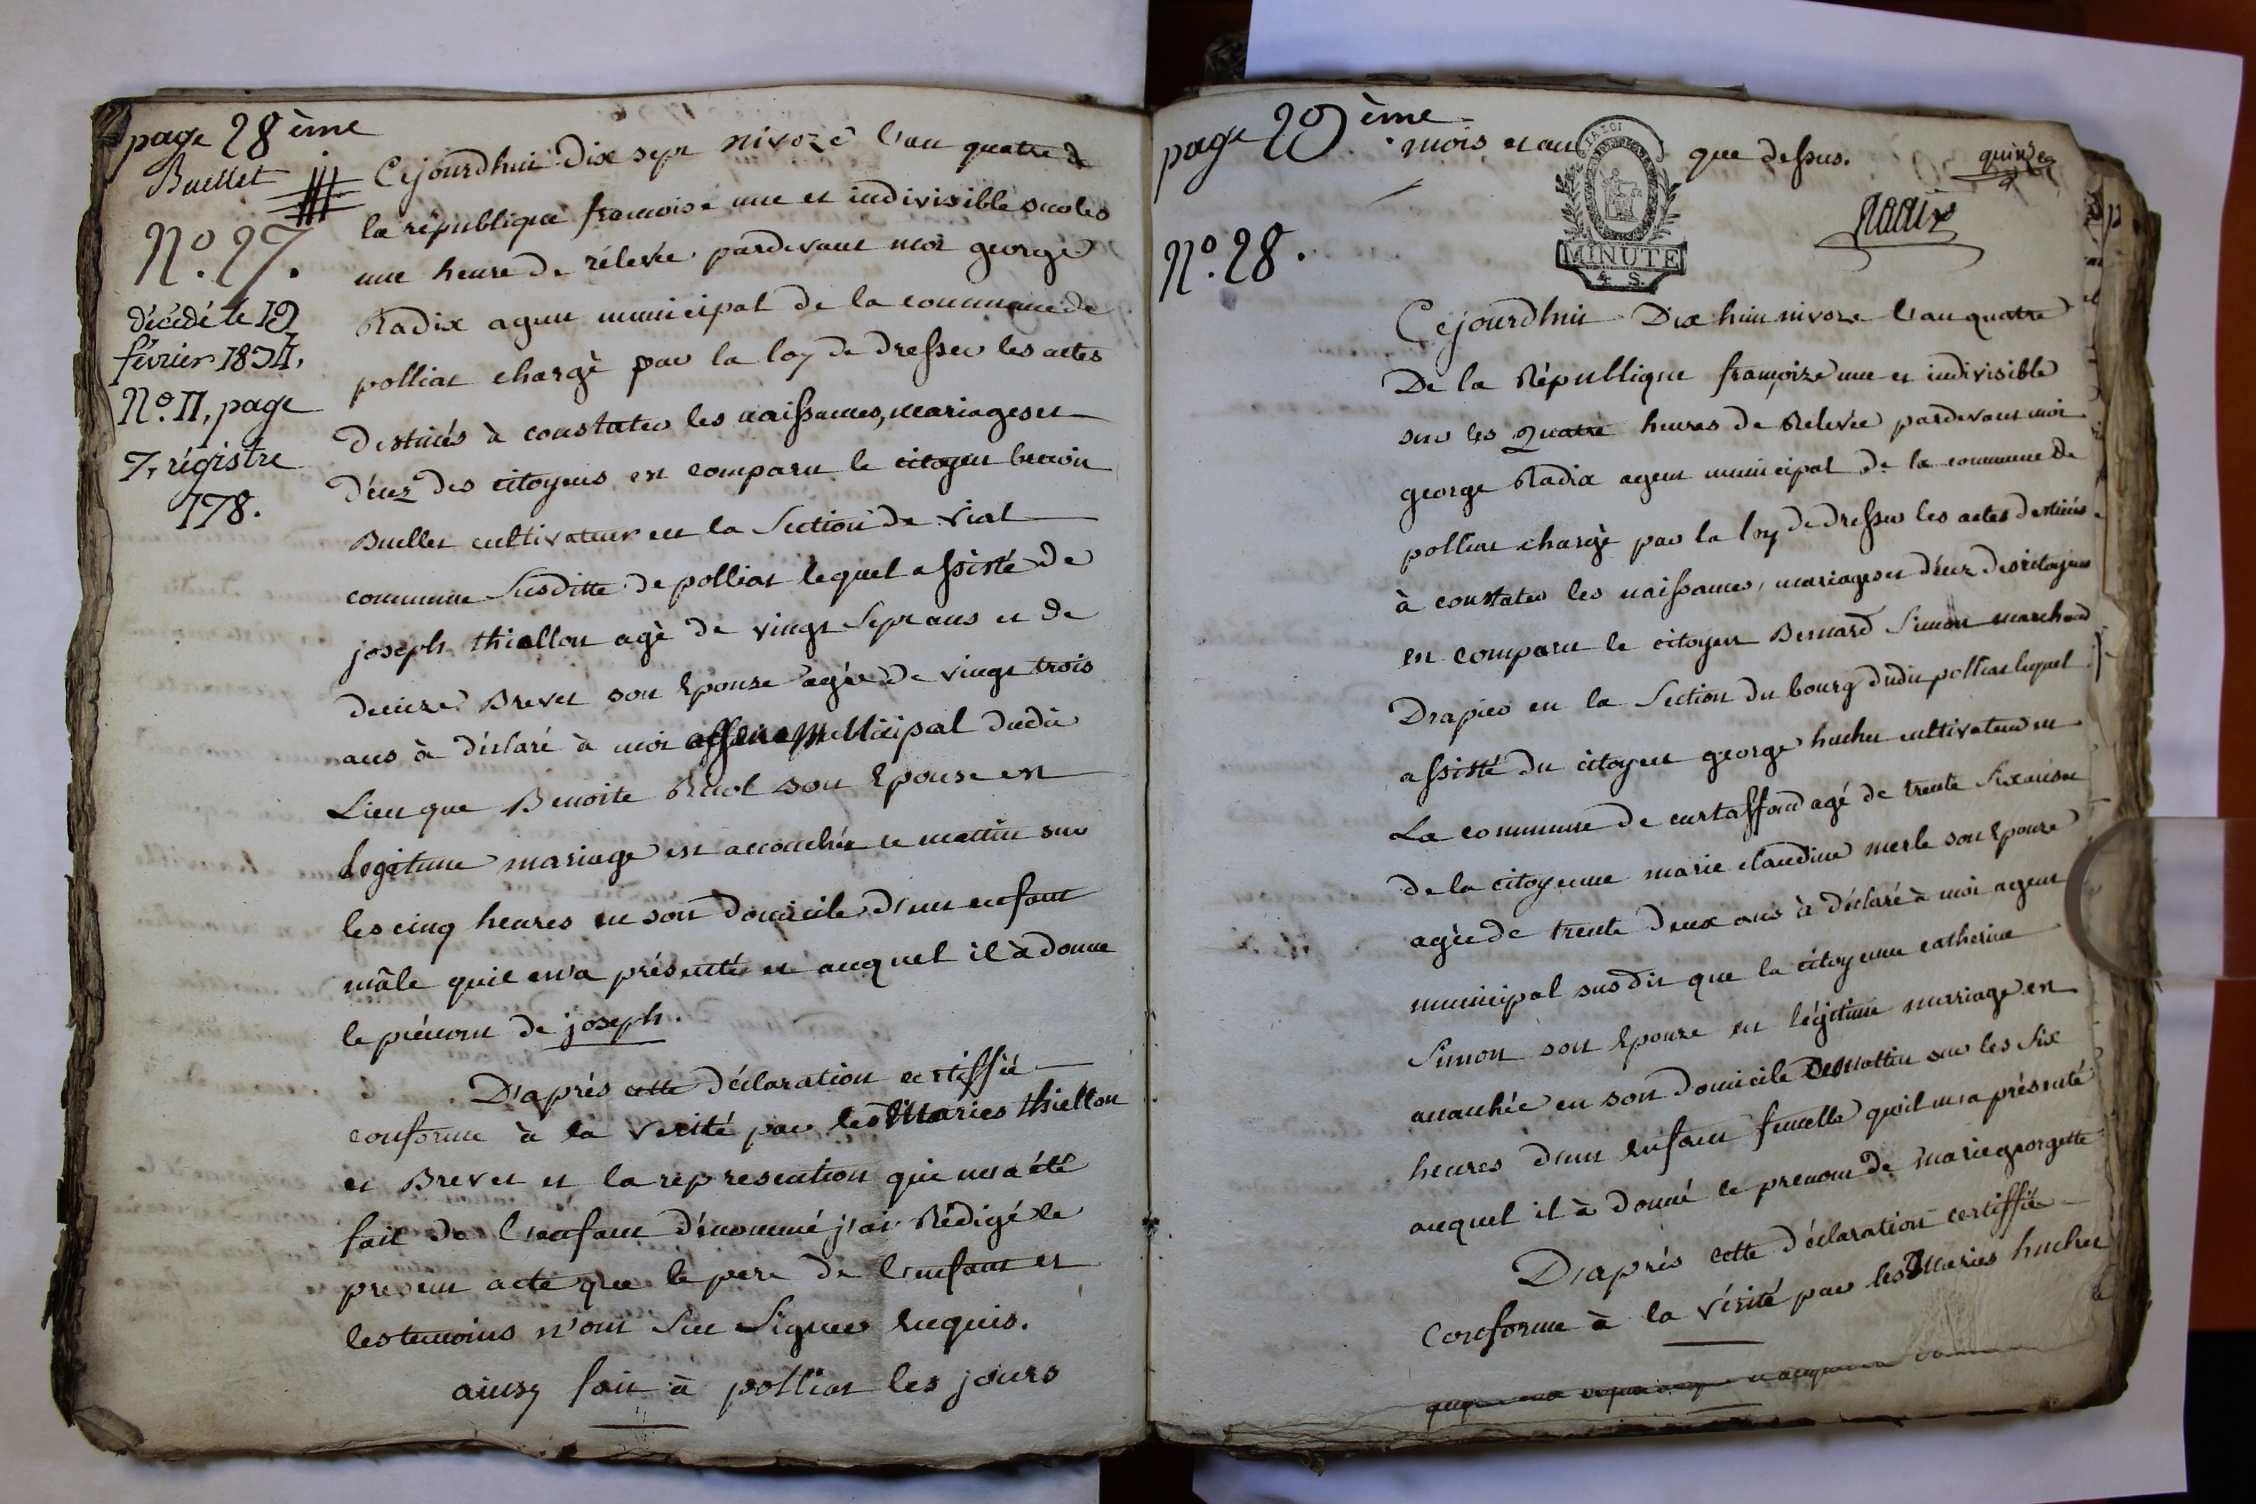 page 28ème
Buellet
N.° 27.
décédé le 19
février 1834,
N.° 11, page
7, régistre
178.
Cejourdhui Dix sept nivoze l'an quatre de
la république francoise une et indivisible sur les
une heure de rélevée pardevant moi george
Radix agent municipal de la commune de
polliat chargè par la loy de dresser les actes
destinés à constater les naissances, mariages et
décez des citoyens est comparu le citoyen benoin
Buellet cultivateur en la Section de viat
commune Susditte de polliat lequel assisté de
joseph thiellon agè de vingt Sept ans et de
denize Brevet son Epouse agée de vingt trois
ans à déclaré à moi municipal dudit
Lieu que Benoite Ruol son Epouse en
Legitime mariage est accouchée ce mattin sur
les cinq heures en son domicile d'un enfant
mâle quil m'a présenté et auquel il à donné
le prénom de joseph.
D'aprés cette déclaration certiffié
conforme à la verité par les Maries thiellon
et Brevet et la representtion qui m'a été
fait de l'enfant dénommé j'ai Rédigé le
present acte que le pere de l'enfant et
les temoins n'ont Su Signer Requis.
ainsy fait à polliat les jours
page 29ème
mois et an que dessus.
quinze
Radix
LA LOI
MINUTE
4 S.
N.° 28.
Cejourdhui Dix huit nivoze l'an quatre
De la République françoize une et indivisible
sur les Quatre heures de Relevée pardevant moi
george Radix agent municipal de la commune de
polliat chargè par la loy de dresser les actes destinés
à constater les naissances, mariages et décez des citoyens
est comparu le citoyen Bernard Simon marchand
Drapier en la Section du bourg dudit polliat lequel
assisté du citoyen george huchet cultivateur en
La commune de curtaffond agé de trente Six ans et
de la citoyenne marie claudine merle son Epouze
agée de trente deux ans à déclaré à moi agent
municipal susdit que la citoyenne catherine
Simon son Epouze en légitime mariage est
accouchée en son domicile ce mattin sur les Six
heures d'un Enfant femelle quil m'a présenté
auquel il à donné le prenom de marie georgette
D'aprés cette déclaration certiffié
Conforme à la vérité par les Maries huchet